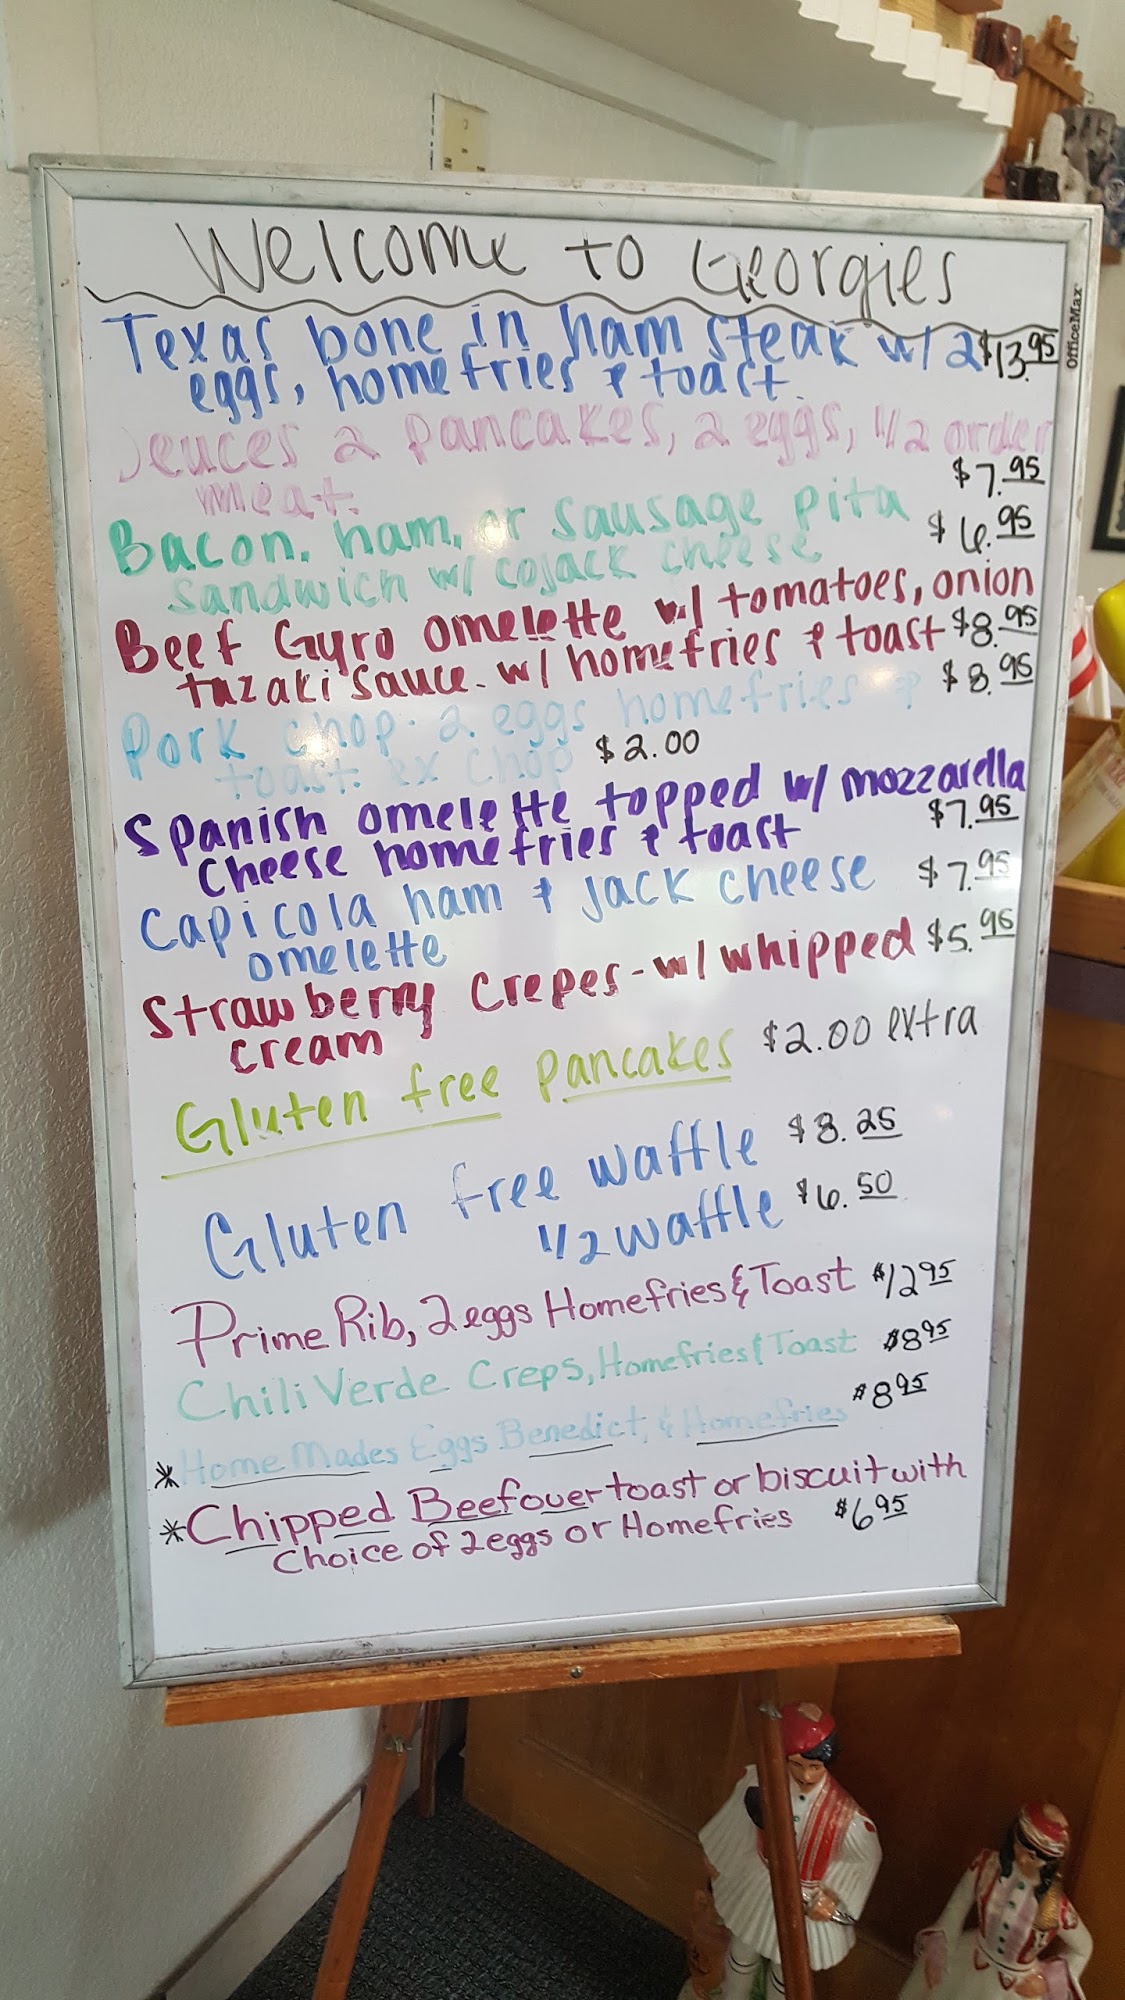 Welcome to Georgies
OfficeMax
Texas bone in ham steak w/ 2 $13.95
eggs, homefries & toast
Deuces 2 pancakes, 2 eggs, 1/2 order
meat. $7.95
Bacon, ham, or sausage pita $6.95
sandwich w/ cojack cheese
Beef Gyro omelette w/ tomatoes, onion
tazaki sauce. w/ homefries & toast $8.95
Pork chop. 2 eggs homefries & $8.95
toast. ex chop $2.00
Spanish omelette topped w/ mozzarella
cheese homefries & toast $7.95
Capicola ham & jack cheese $7.95
omelette
Strawberry Crepes - w/ whipped $5.95
cream
Gluten free pancakes $2.00 extra
Gluten free waffle $8.25
1/2 waffle $6.50
Prime Rib, 2 eggs Homefries & Toast $12.95
Chili Verde Creps, Homefries & Toast $8.95
* Home Mades Eggs Benedict, & Homefries $8.95
* Chipped Beef over toast or biscuit with
Choice of 2 eggs or Homefries $6.95